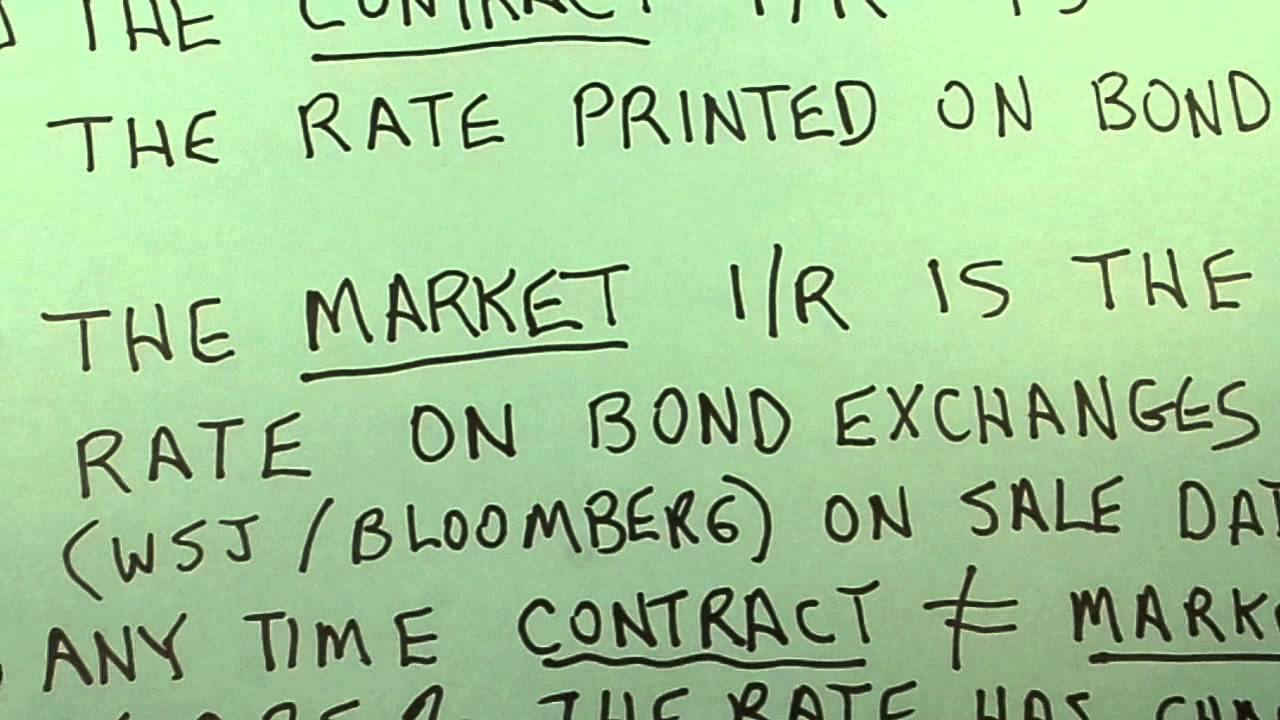 THE CONTRACT I/R IS
THE RATE PRINTED ON BOND
THE MARKET I/R IS THE
RATE ON BOND EXCHANGES
(WSJ / BLOOMBERG) ON SALE
ANY TIME CONTRACT ≠
THE RATE HAS